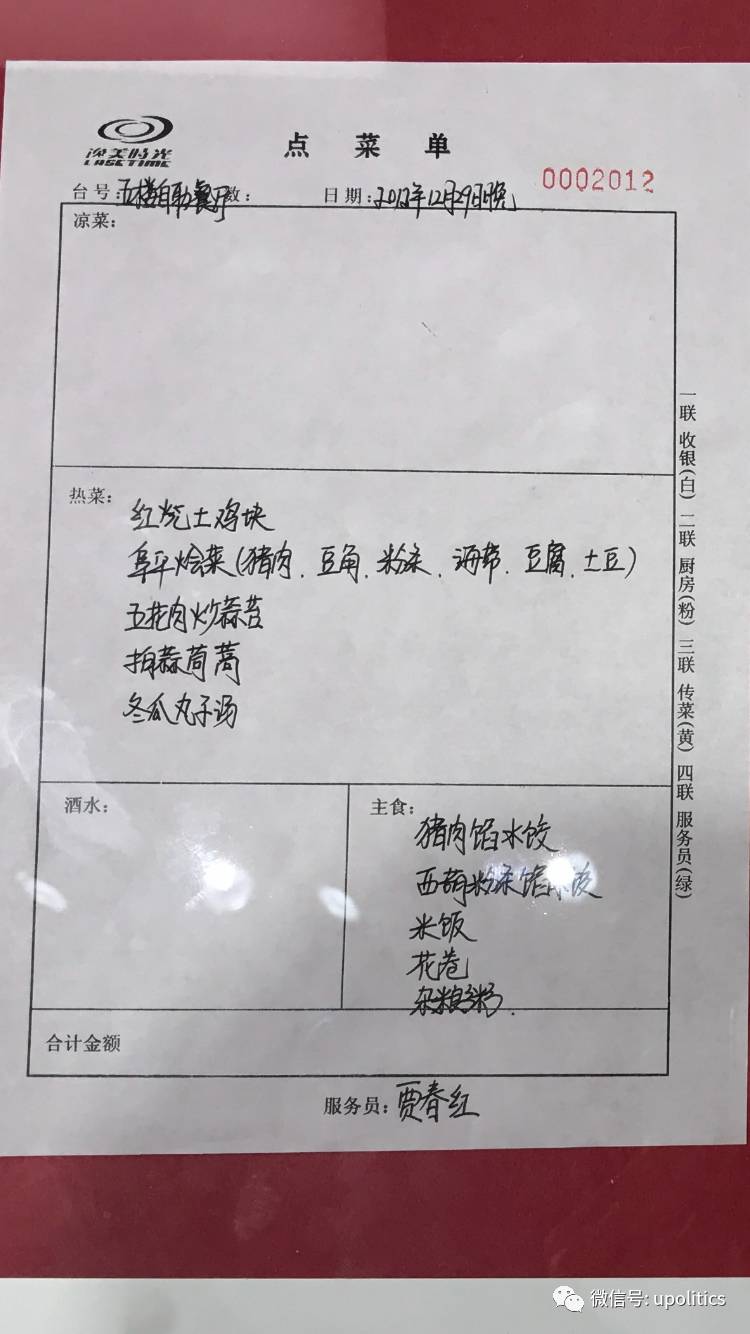 逸美时光
LASETIME
点菜单
0002012
台号:五楼自助餐厅 数:
日期:2012年12月29日晚
凉菜:
热菜:
红烧土鸡块
阜平烩菜(猪肉、豆角、粉条、海带、豆腐、土豆)
五花肉炒蒜苔
拍蒜茼蒿
冬瓜丸子汤
酒水:
主食:
猪肉馅水饺
西葫粉条馅水饺
米饭
花卷
杂粮粥.
合计金额
服务员:贾春红
一联 收银(白) 二联 厨房(粉) 三联 传菜(黄) 四联 服务员(绿)
微信号: upolitics